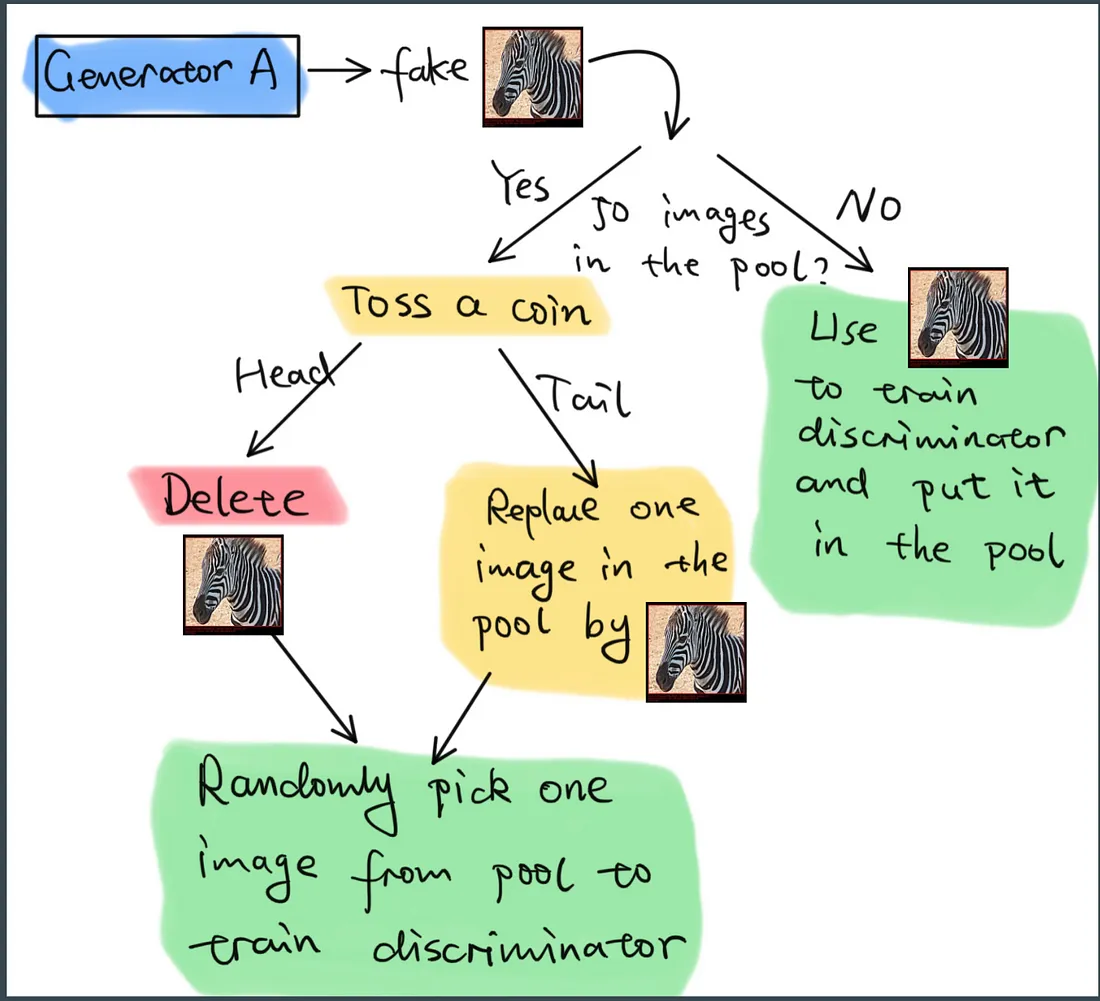 Generator A
fake
Yes
50 images
in the pool?
NO
Toss a coin
Use
to train
discriminator
and put it
in the pool
Head
Tail
Delete
Replace one
image in the
pool by
Randomly pick one
image from pool to
train discriminator